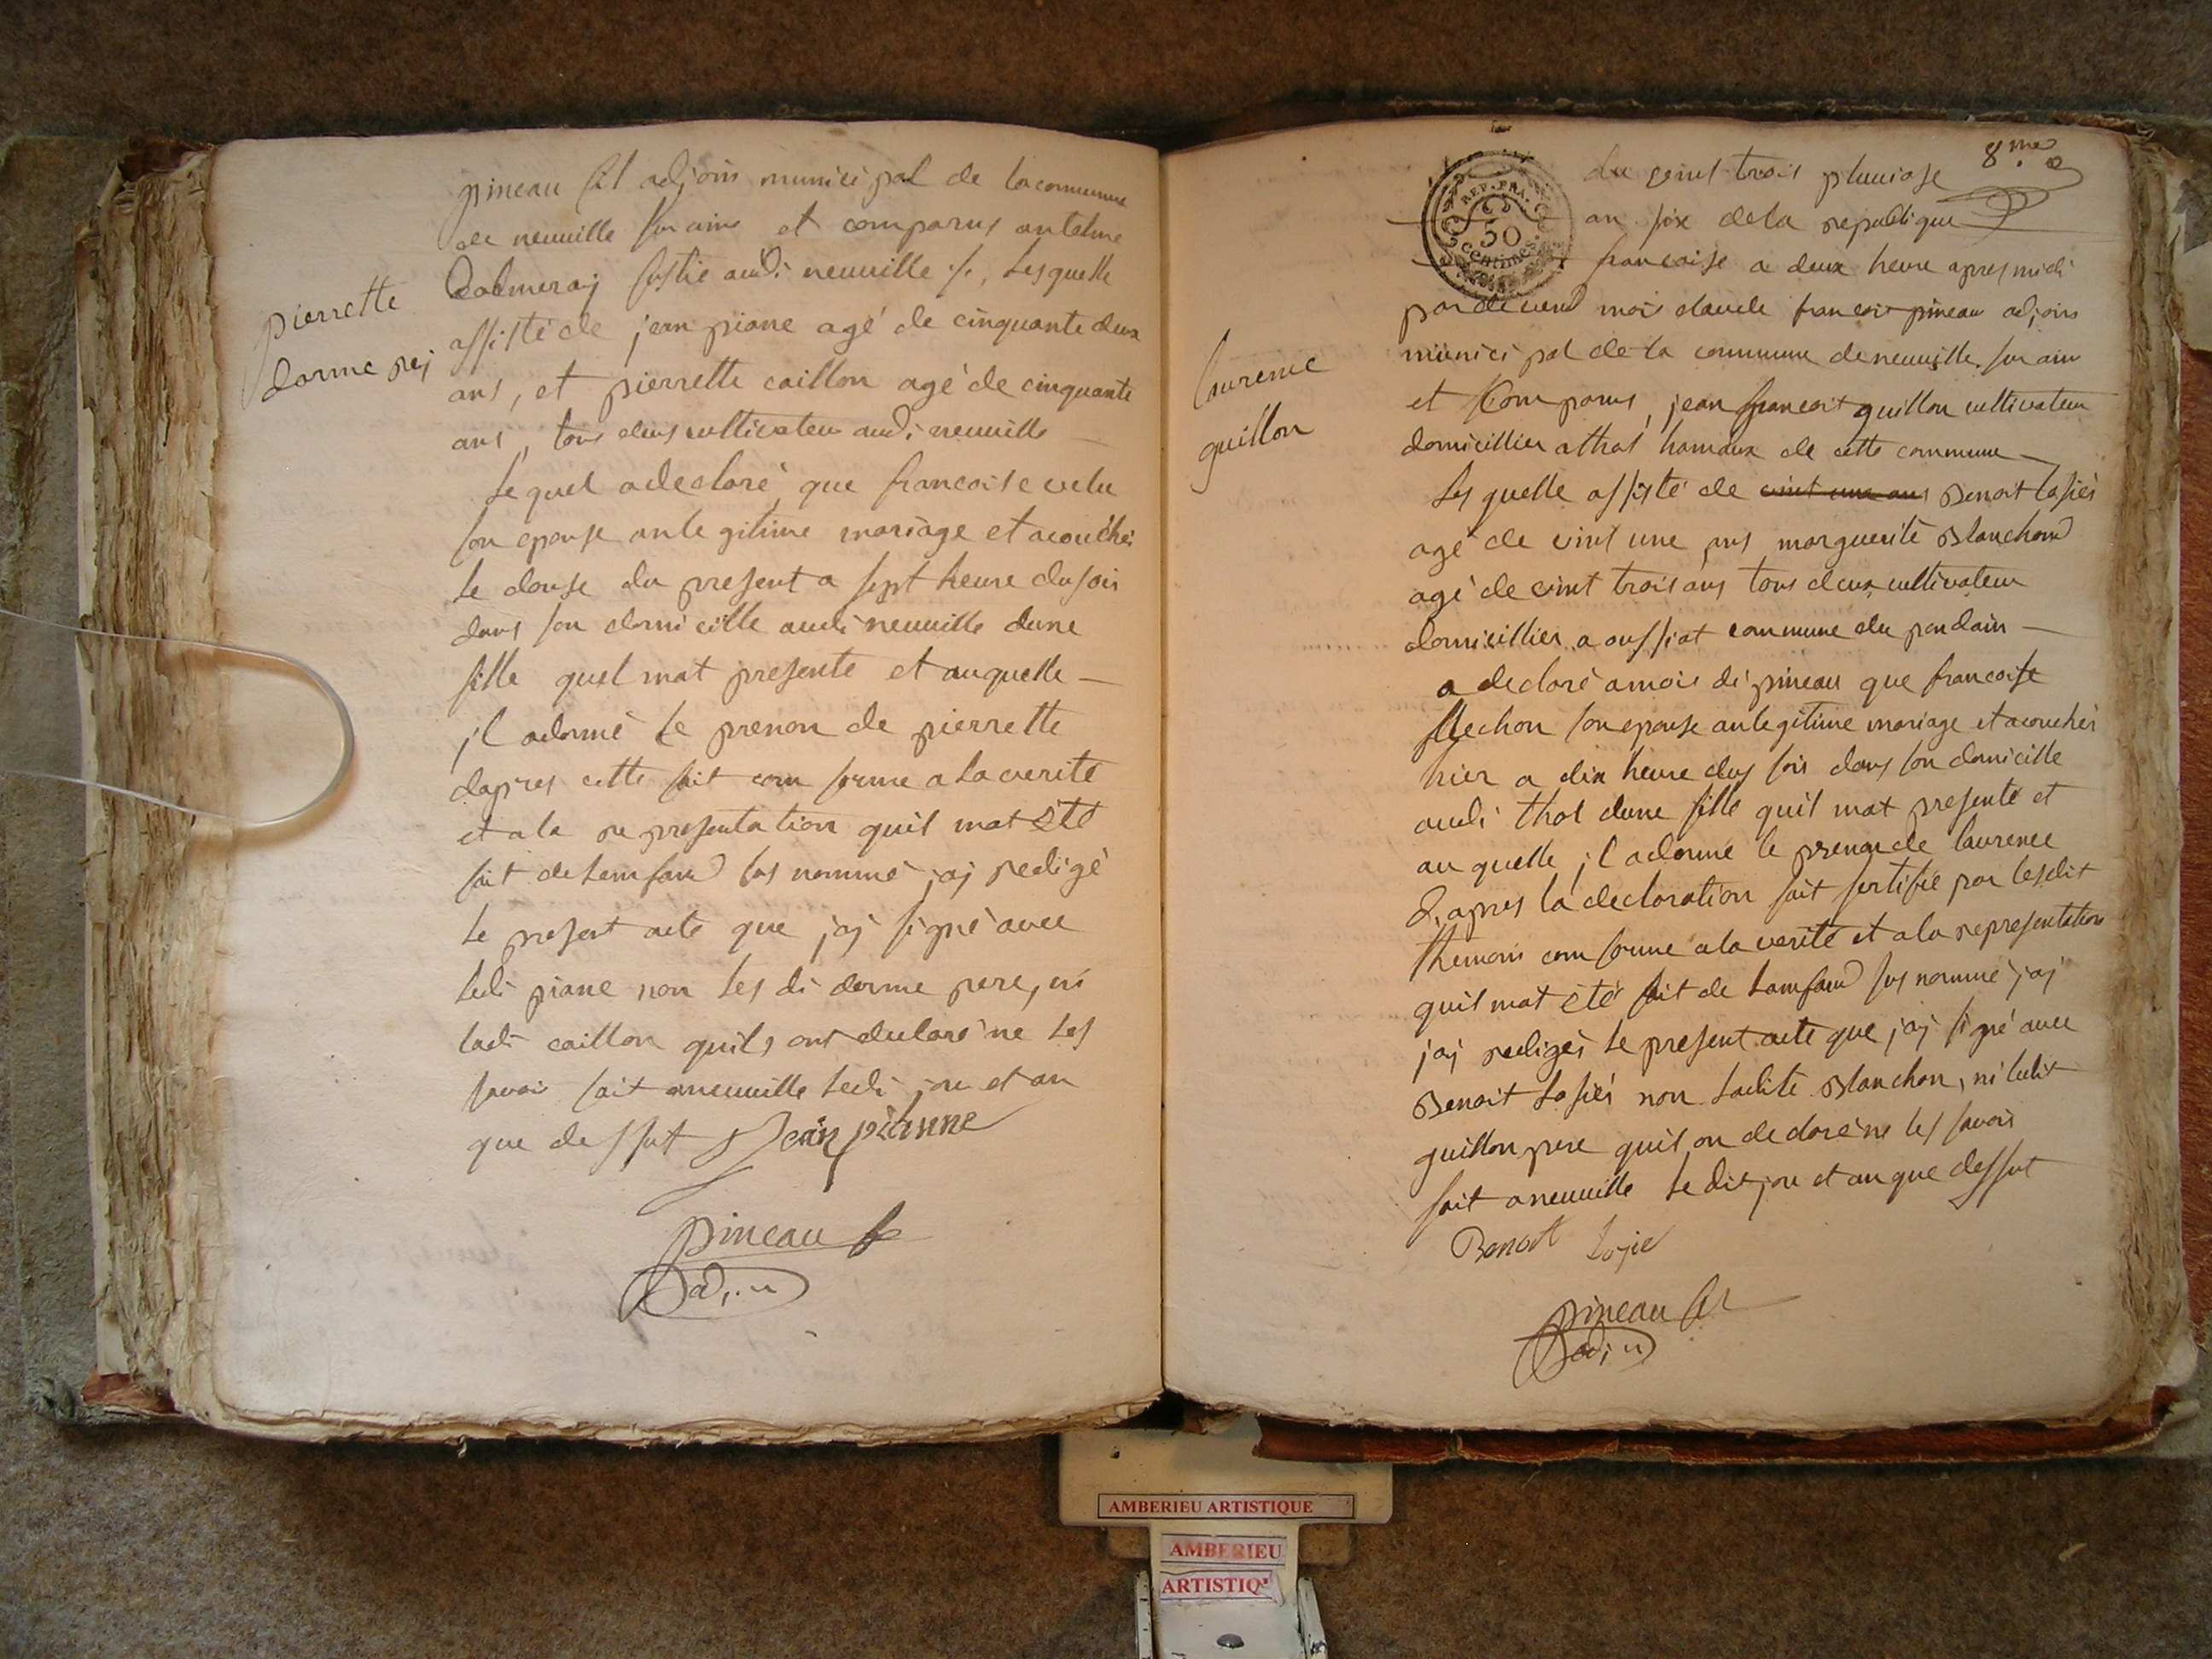 pierrette
dorme rej
pineau fil adjoin municipal de la commune
de neuville sur ains et comparus antelme
assisté de jean piane agé de cinquante deux
ans, et pierrette caillon agé de cinquante
ans, tous deus cultivateur audi neuville
Le quel a declaré que francoise velu
son epouse an le gitime mariage et acouchéi
le douse du present a sept heure du soir
dans son domicille audi neuville dune
fille quel mat presente et au quelle
jl adonné le prenon de pierrette
dapres cette fait com forme a la verite
et a la representation quil mat été
fait de lemfand sus nommé jaj redigé
le present acte que jaj signé avec
ledi piane non les di dorme pere, ni
ladi caillon quils ont declaré ne les
savoir fait aneuville ledi jou et an
que dessut Jean pianne
pineau f
adj.
8me
REP. FRA.
50
centimes
du vint trois pluviose
an six de la republique
francoise a deux heure apres midi
par de vend moi claude francois pineau adjoin
munici pal de la commune de neuville sur ain
et Comparus, jean francois guillon cultivateur
domicillier a thol hamaux de cette commune
Les quelle assisté de vint une ans Benoit Lasiés
agé de vint une ans marguerite Blanchond
agé de vint trois ans tous deux cultivateur
domicillier a oussiat commune du pondain
a declaré a moi di pineau que francoise
flechon son epouse an legitime mariage et acouchéi
hier a dix heure dus soir dans son domicille
audi thol dune fille quil mat presenté et
au quelle jl adonné le prenon de laurence
D,apres la declaration fait sertifié par lesdit
themoin com forme a la verité et a la representation
quil mat été fait de Lamfand sus nommé jaj
jaj redigéi le present acte que jaj signé avec
Benoit Lasiés non Ladite Blanchon, ni ledit
guillon pere quil on declaré ne les savoir
fait a neuville le dit jou et an que dessut
Laurence
guillon
Benoit
pineau fil
adj.
AMBERIEU ARTISTIQUE
AMBERIEU
ARTISTIQ